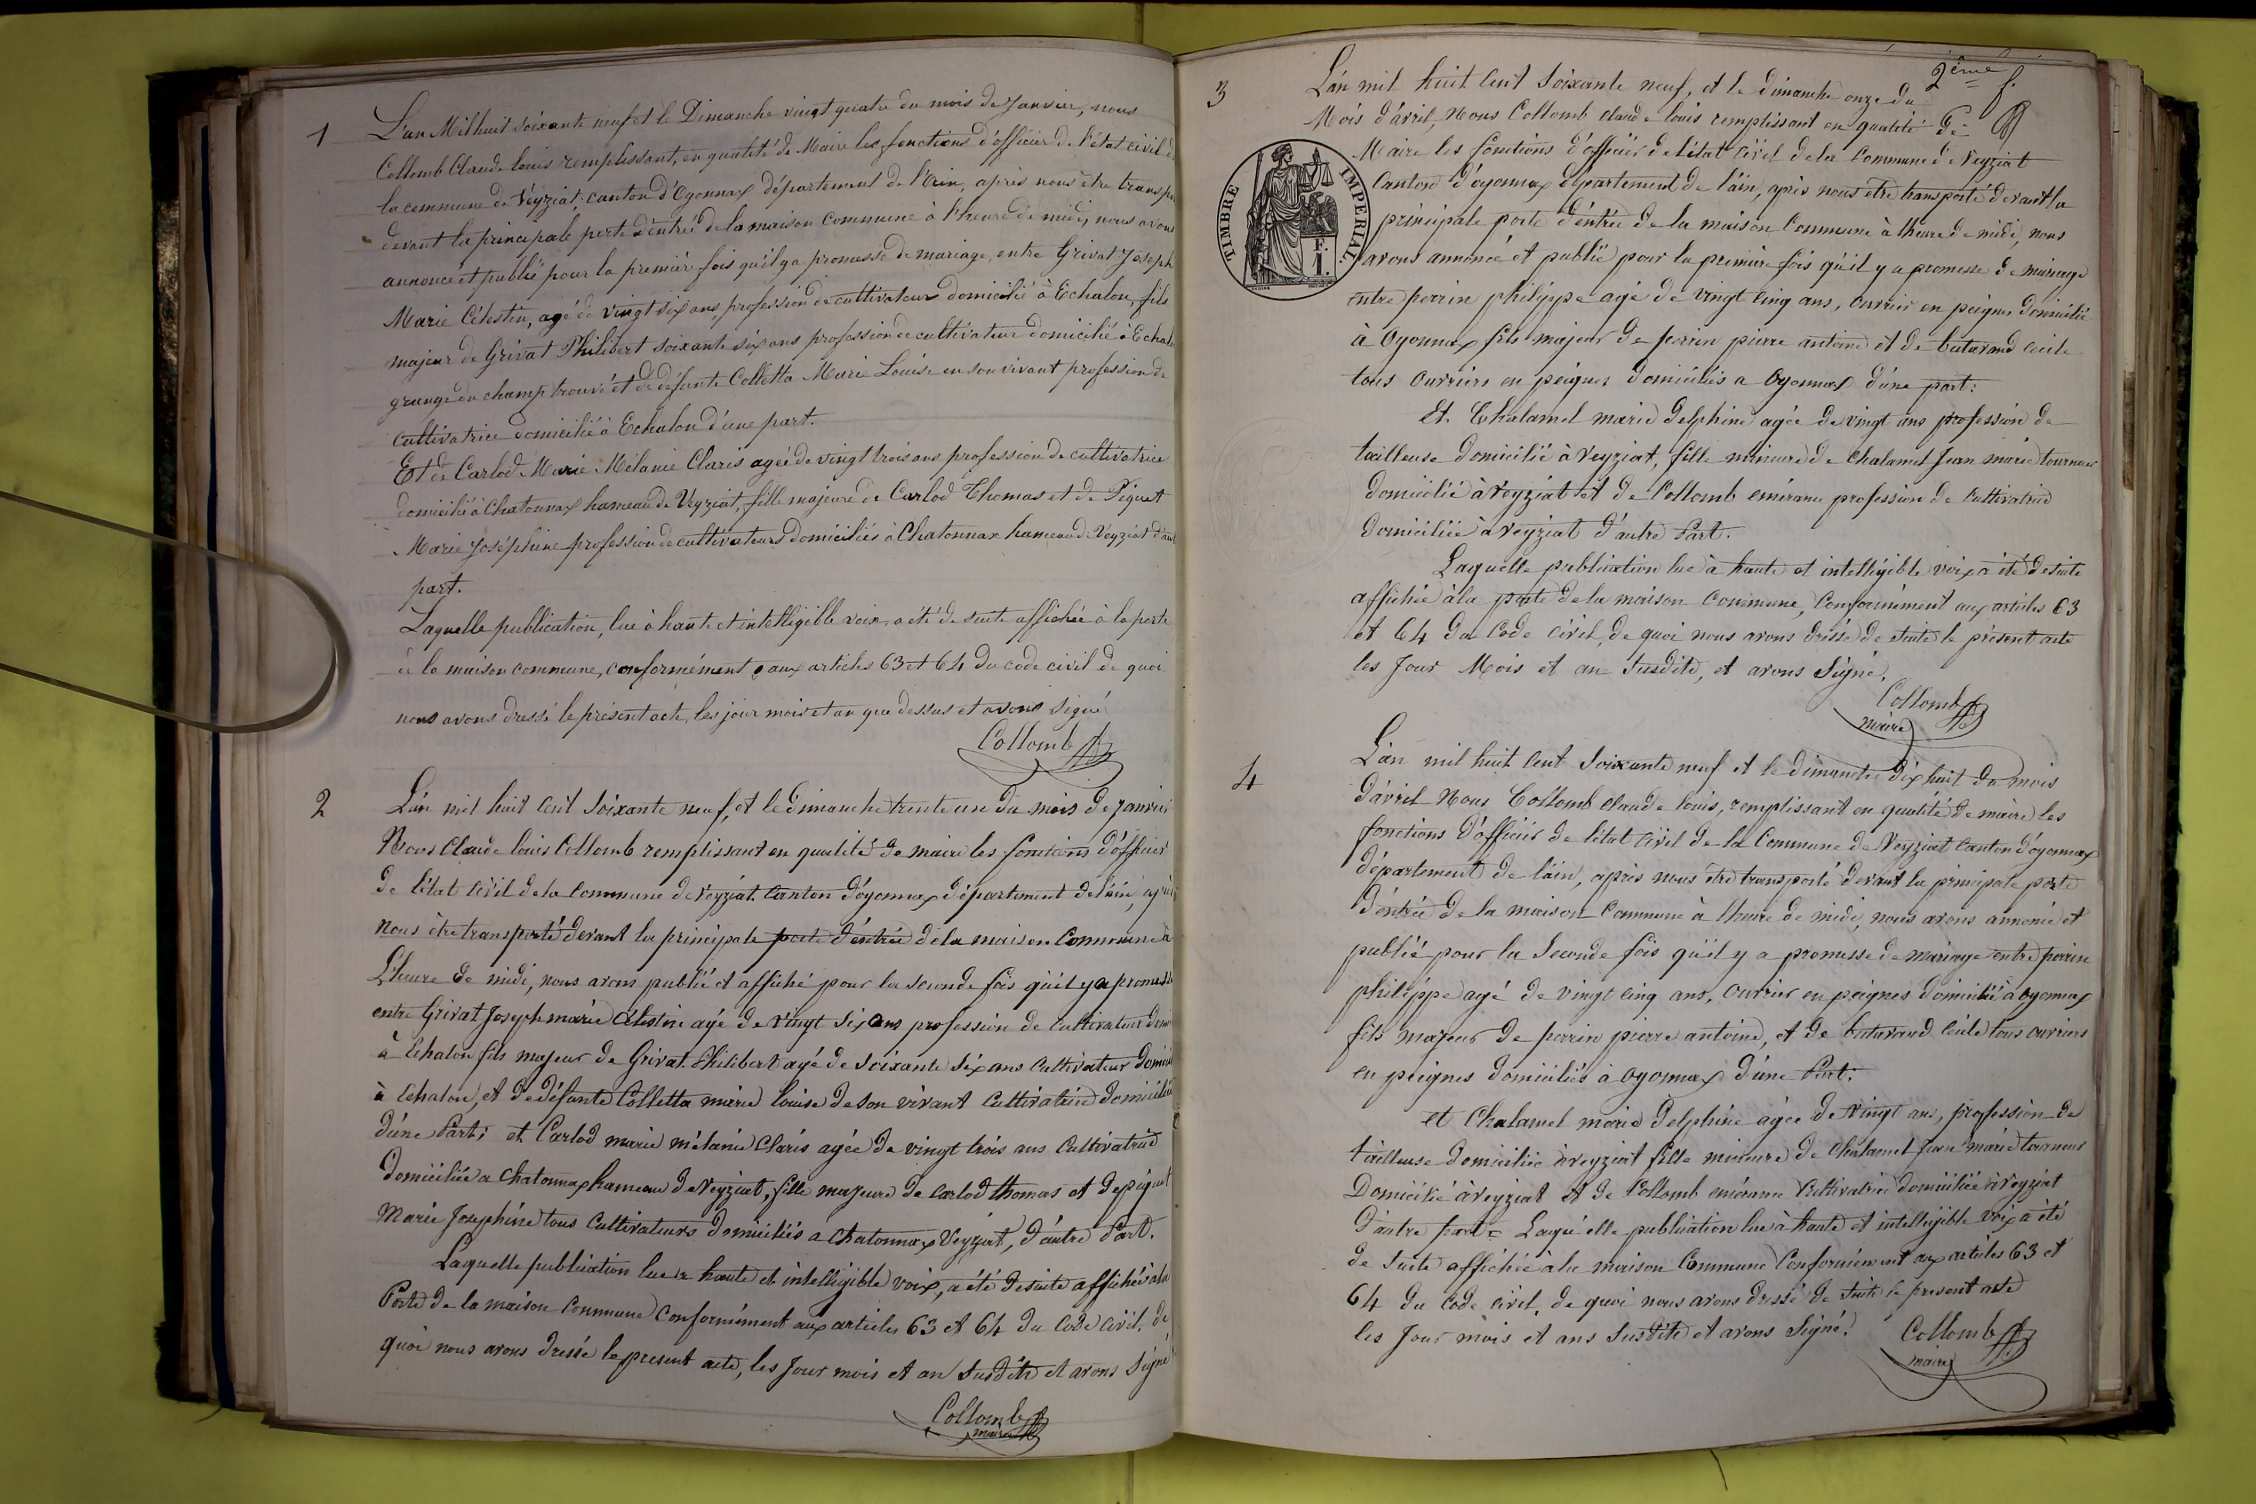 1
L'an Mil huit soixante neuf et le Dimanche vingt quatre du mois de Janvier, nous
Collomb Claude louis remplissant, en qualité de Maire les fonctions d'officier de l'état civil de
la commune de Veyziat canton d'Oyonnax département de l'Ain, après nous être transpor
devant la principale porte d'entrée de la maison commune à l'heure de midi, nous avons
annoncé et publié pour la premier fois qu'il y a promesse de mariage, entre Grivat Joseph
Marie Célestin, agé de vingt six ans, profession de cultivateur domicilié à Echalon, fils
majeur de Grivat Philibert soixante six ans profession de cultivateur domicilié à Echalo
grange du champ trouvé et de défunte Colletta Marie Louise en son vivant profession de
cultivatrice domicilié à Echalon d'une part.
Et de Carlod Marie Mélanie Claris agée de vingt trois ans profession de cultivatrice
domicilié à Chatonnax hameau de Veyziat, fille majeure de Carlod Thomas et de Piquet
Marie Joséphine profession de cultivateurs domiciliés à Chatonnax hameau de Veyziat d'aut
part.
Laquelle publication, lue à haute et intelligible voix, a été de suite affichée à la porte
de la maison commune, conformément aux articles 63 et 64 du code civil de quoi
nous avons dressé le présent acte, les jour mois et an que dessus et avons signé
Collomb
2
L'an mil huit cent soixante neuf, et le dimanche trente un du mois de janvier
Nous Claude louis Collomb remplissant en qualité de maire les fonctions d'officier
de l'état civil de la commune de Veyziat canton d'oyonnax département de l'ain, après
nous être transporté devant la principale porte d'entrée de la maison commune à
L'heure de midi, nous avons publié et affiché pour la seconde fois qu'il y a promesse
entre Grivat Joseph marie Célestin agé de vingt six ans profession de cultivateur domi
à Echalon fils majeur de Grivat Philibert agé de soixante six ans cultivateur domici
à Echalon, et de défunte Colletta marie louise de son vivant cultivatrice domiciliée
d'une Part; et Carlod marie mélanie Claris agée de vingt trois ans cultivatrice
domiciliée a Chatonnax hameau de Veyziat, fille majeure de Carlod thomas et de piquet
Marie Josephine tous cultivateurs domiciliés a Chatonnax Veyziat, d'autre Part.
Laquelle publication lue a haute et intelligible voix, a été de suite affichée à la
Porte de la maison commune conformément aux articles 63 et 64 du Code civil, de
quoi nous avons dressé le present acte, les Jour mois et an susdits et avons signé
Collomb
maire
2ème f.
3
L'an mil huit cent soixante neuf, et le dimanche onze du
Mois d'avril, Nous Collomb claude louis remplissant en qualité de
Maire les fonctions d'officier de l'état civil de la Commune de Veyziat
Canton d'oyonnax département de l'ain, après nous être transporté devant la
principale porte d'entrée de la maison Commune à l'heure de midi, nous
avons annoncé et publié pour la première fois qu'il y a promesse de mariage
TIMBRE IMPERIAL.
entre perrin philippe agé de vingt cinq ans, ouvrier en peignes domicilié
à Oyonnax fils majeur de perrin pierre antoine et de butavand cécile
tous ouvriers en peignes domiciliés a Oyonnax d'une part:
Et Chalamel marie Delphine agée de vingt ans profession de
tailleuse domicilié à Veyziat, fille mineure de Chalamel Jean marie tourneur
domicilié à Veyziat et de Collomb emérane profession de cultivatrice
domiciliée à Veyziat d'autre Part.
Laquelle publication lue à haute et intelligible voix a été de suite
affichée à la porte de la maison Commune, Conformément aux articles 63
et 64 du Code civil, de quoi nous avons dressé de suite le présent acte
les Jour Mois et an susdits, et avons signé.
Collomb
maire
4
L'an mil huit cent soixante neuf et le dimanche dix huit du mois
d'avril Nous Collomb claude louis, remplissant en qualité de maire les
fonctions d'officier de l'état civil de la Commune de Veyziat canton d'oyonnax
département de l'ain, après nous être transporté devant la principale porte
d'entrée de la maison Commune à l'heure de midi, nous avons annoncé et
publié pour la seconde fois qu'il y a promesse de mariage entre perrin
philippe agé de vingt cinq ans, ouvrier en peignes domicilié à oyonnax
fils majeur de perrin pierre antoine, et de butavand cécile tous ouvriers
en peignes domiciliés à oyonnax d'une Part:
et Chalamel marie Delphine agée de vingt ans, profession de
tailleuse domiciliée à veyziat fille mineure de Chalamel Jean marie tourneur
Domicilié à Veyziat et de Collomb emérane cultivatrice domiciliée à Veyziat
d'autre part = Laquelle publication lue à haute et intelligible voix a été
de suite affichée à la maison Commune Conformément aux articles 63 et
64 du Code civil, de quoi nous avons dressé de suite le present acte
les Jour mois et ans susdits et avons signé.
Collomb
maire